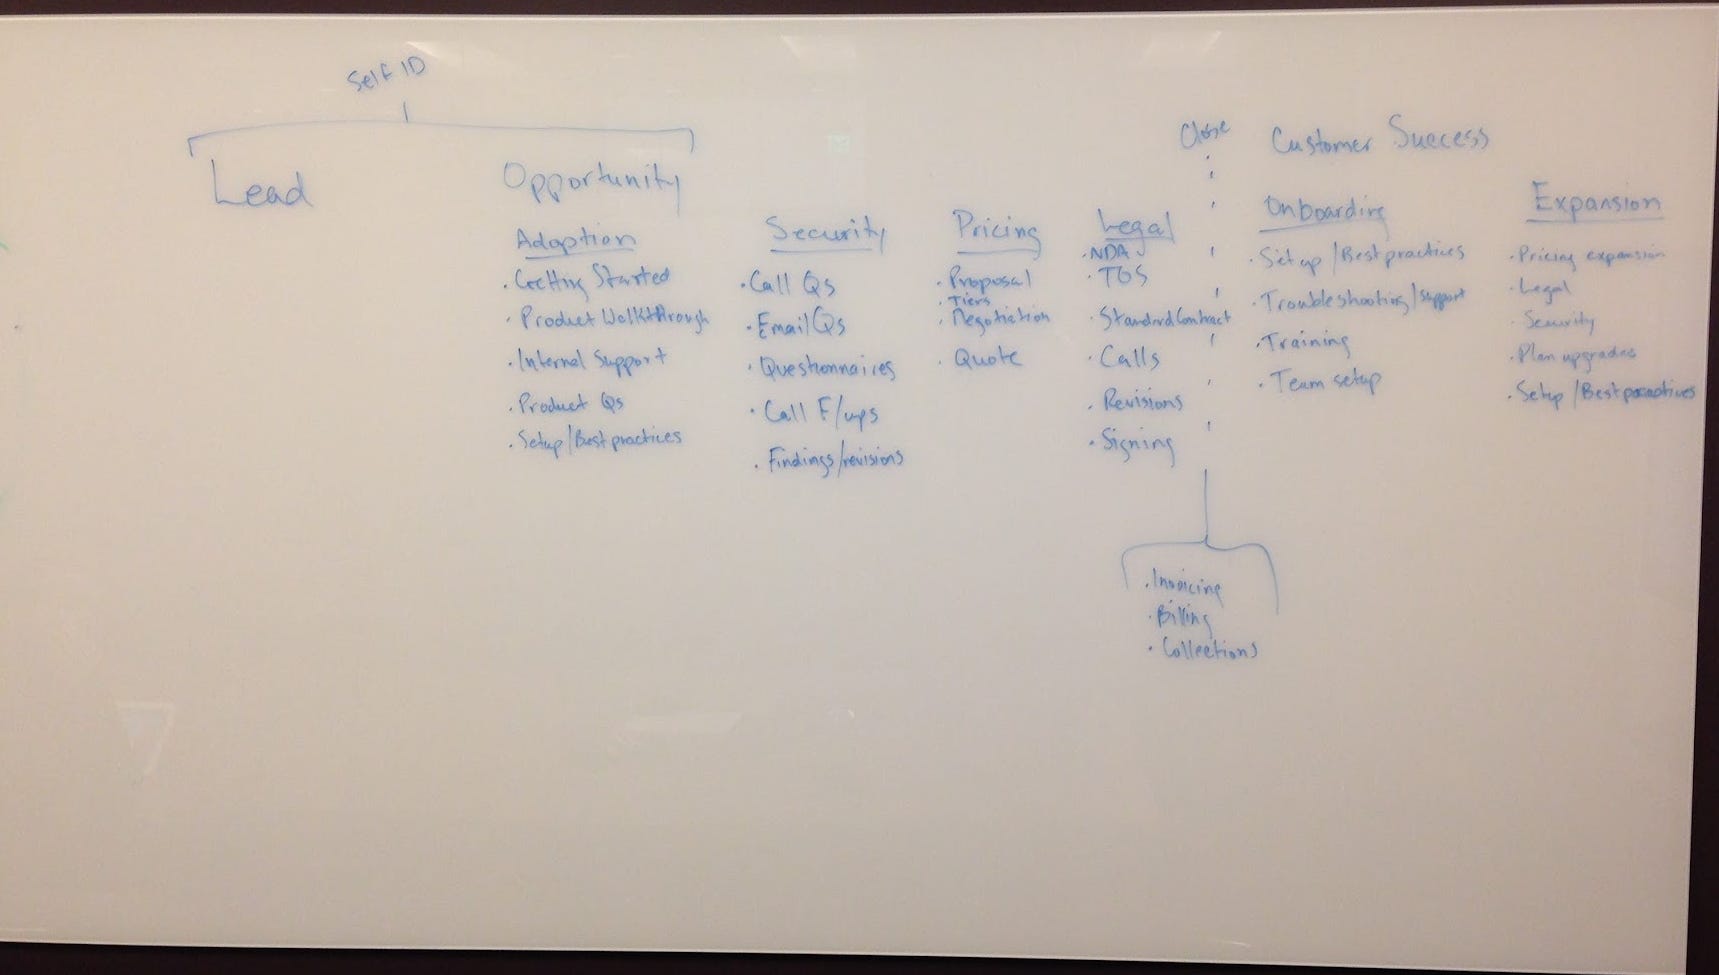 Self ID
Lead
Opportunity
Adoption
· Getting Started
· Product Walkthrough
· Internal Support
· Product Qs
· Setup/Best practices
Security
· Call Qs
· Email Qs
· Questionnaires
· Call F/ups
· Findings/revisions
Pricing
· Proposal
· Tiers
· Negotiation
· Quote
Legal
· NDA
· TOS
· Standard Contract
· Calls
· Revisions
· Signing
Close
· Invoicing
· Billing
· Collections
Customer Success
Onboarding
· Setup/Best practices
· Troubleshooting/Support
· Training
· Team setup
Expansion
· Pricing expansion
· Legal
· Security
· Plan upgrades
· Setup/Best practices